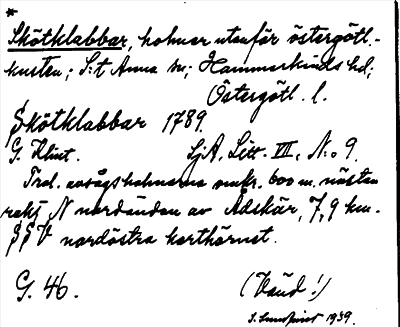 *
Skötklabbar, holmar utanför östergötl.-
kusten; S:t Anna sn; Hammarkinds hd;
Östergötl. l.
Skötklabbar 1789.
G. Klint. SjA, Litt. VII, N:o 9.
Trol. avsågs holmarna omkr. 600 m. nästan
rakt N nordändan av Ådskär, 7,9 km.
SSV nordöstra karthörnet.
G. 46. (Vänd!)
I. Lundquist 1939.